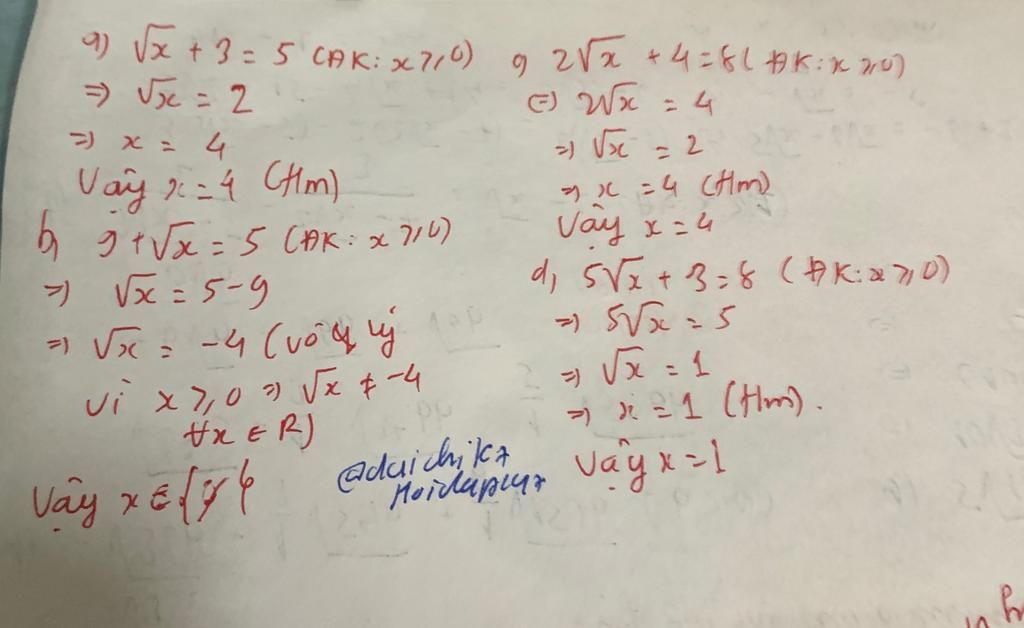 a) √x + 3 = 5 (ĐK: x ≥ 0)
=> √x = 2
=> x = 4
Vậy x = 4 (tm)
b, 9 + √x = 5 (ĐK: x ≥ 0)
=> √x = 5 - 9
=> √x = -4 (vô lý
vì x ≥ 0 => √x ≠ -4
∀x ∈ R)
Vậy x ∈ {∅}
c, 2√x + 4 = 8 (ĐK: x ≥ 0)
<=> 2√x = 4
=> √x = 2
=> x = 4 (tm)
Vậy x = 4
d, 5√x + 3 = 8 (ĐK: x ≥ 0)
=> 5√x = 5
=> √x = 1
=> x = 1 (tm).
Vậy x = 1